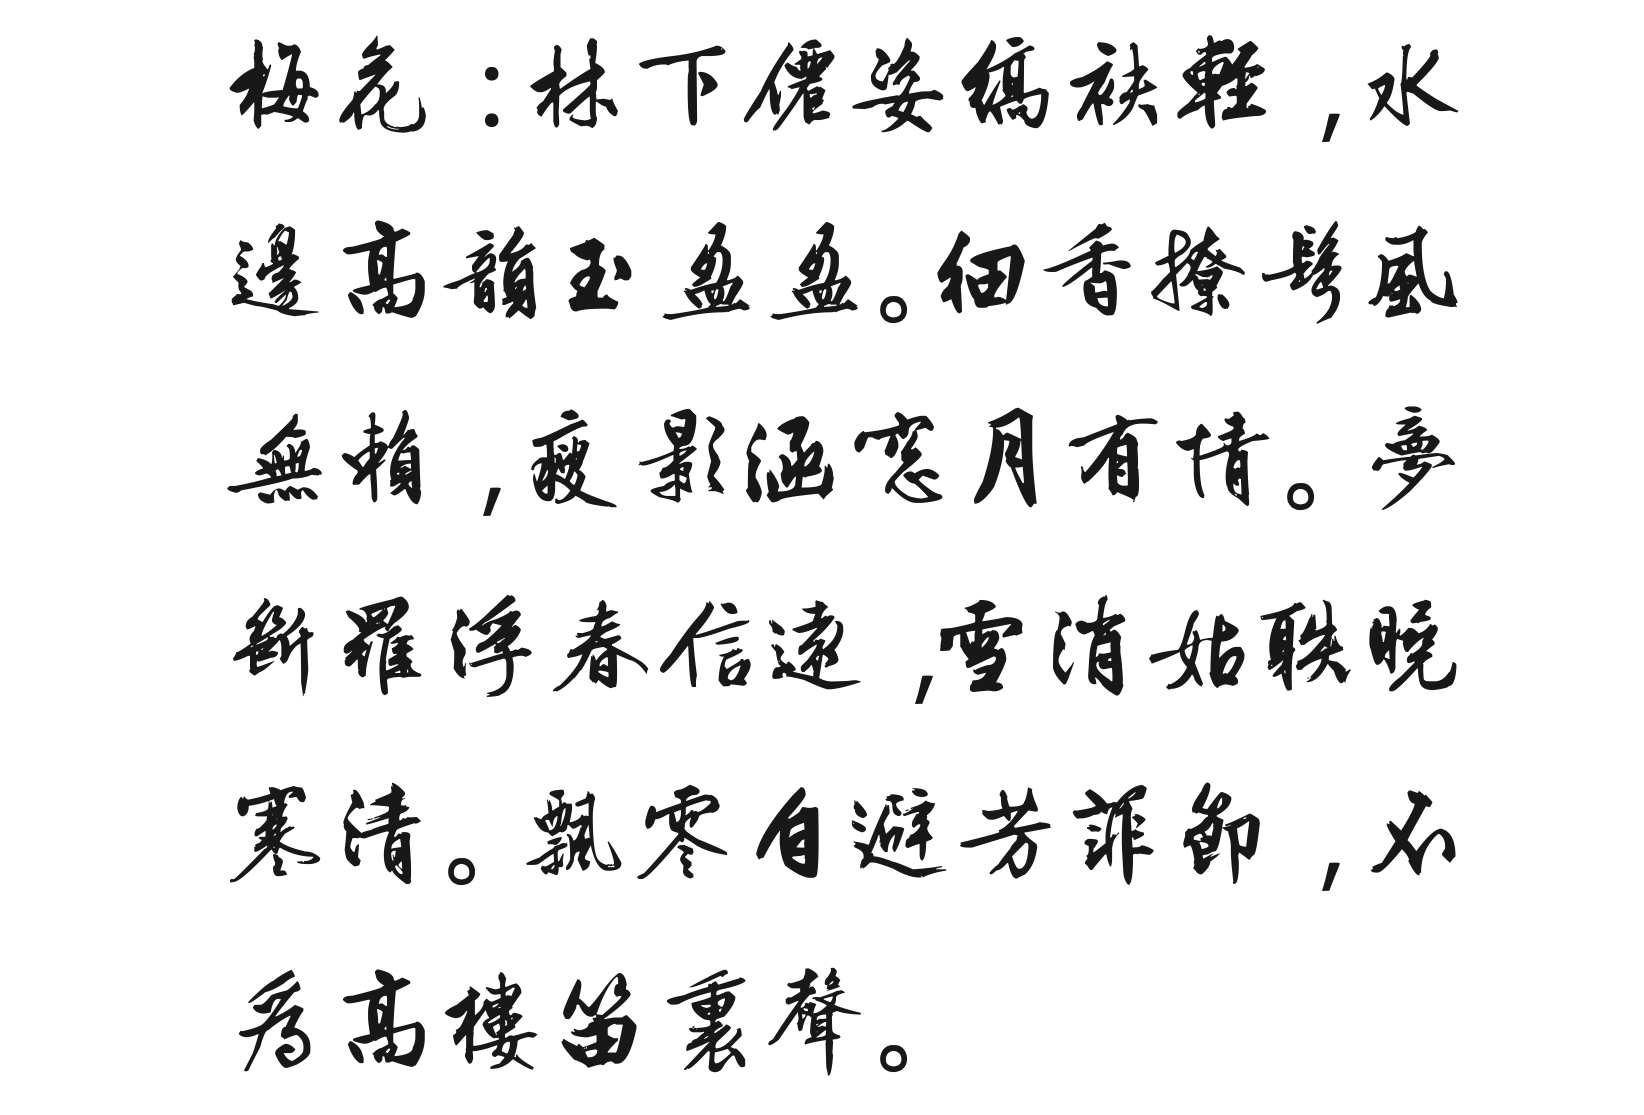 梅花：林下僊姿縞袂輕，水
邊高韻玉盈盈。細香撩鬓風
無賴，瘦影涵窓月有情。夢
斷羅浮春信遠，雪消姑眣曉
寒清。飄零自避芳菲節，不
爲高樓笛裏聲。